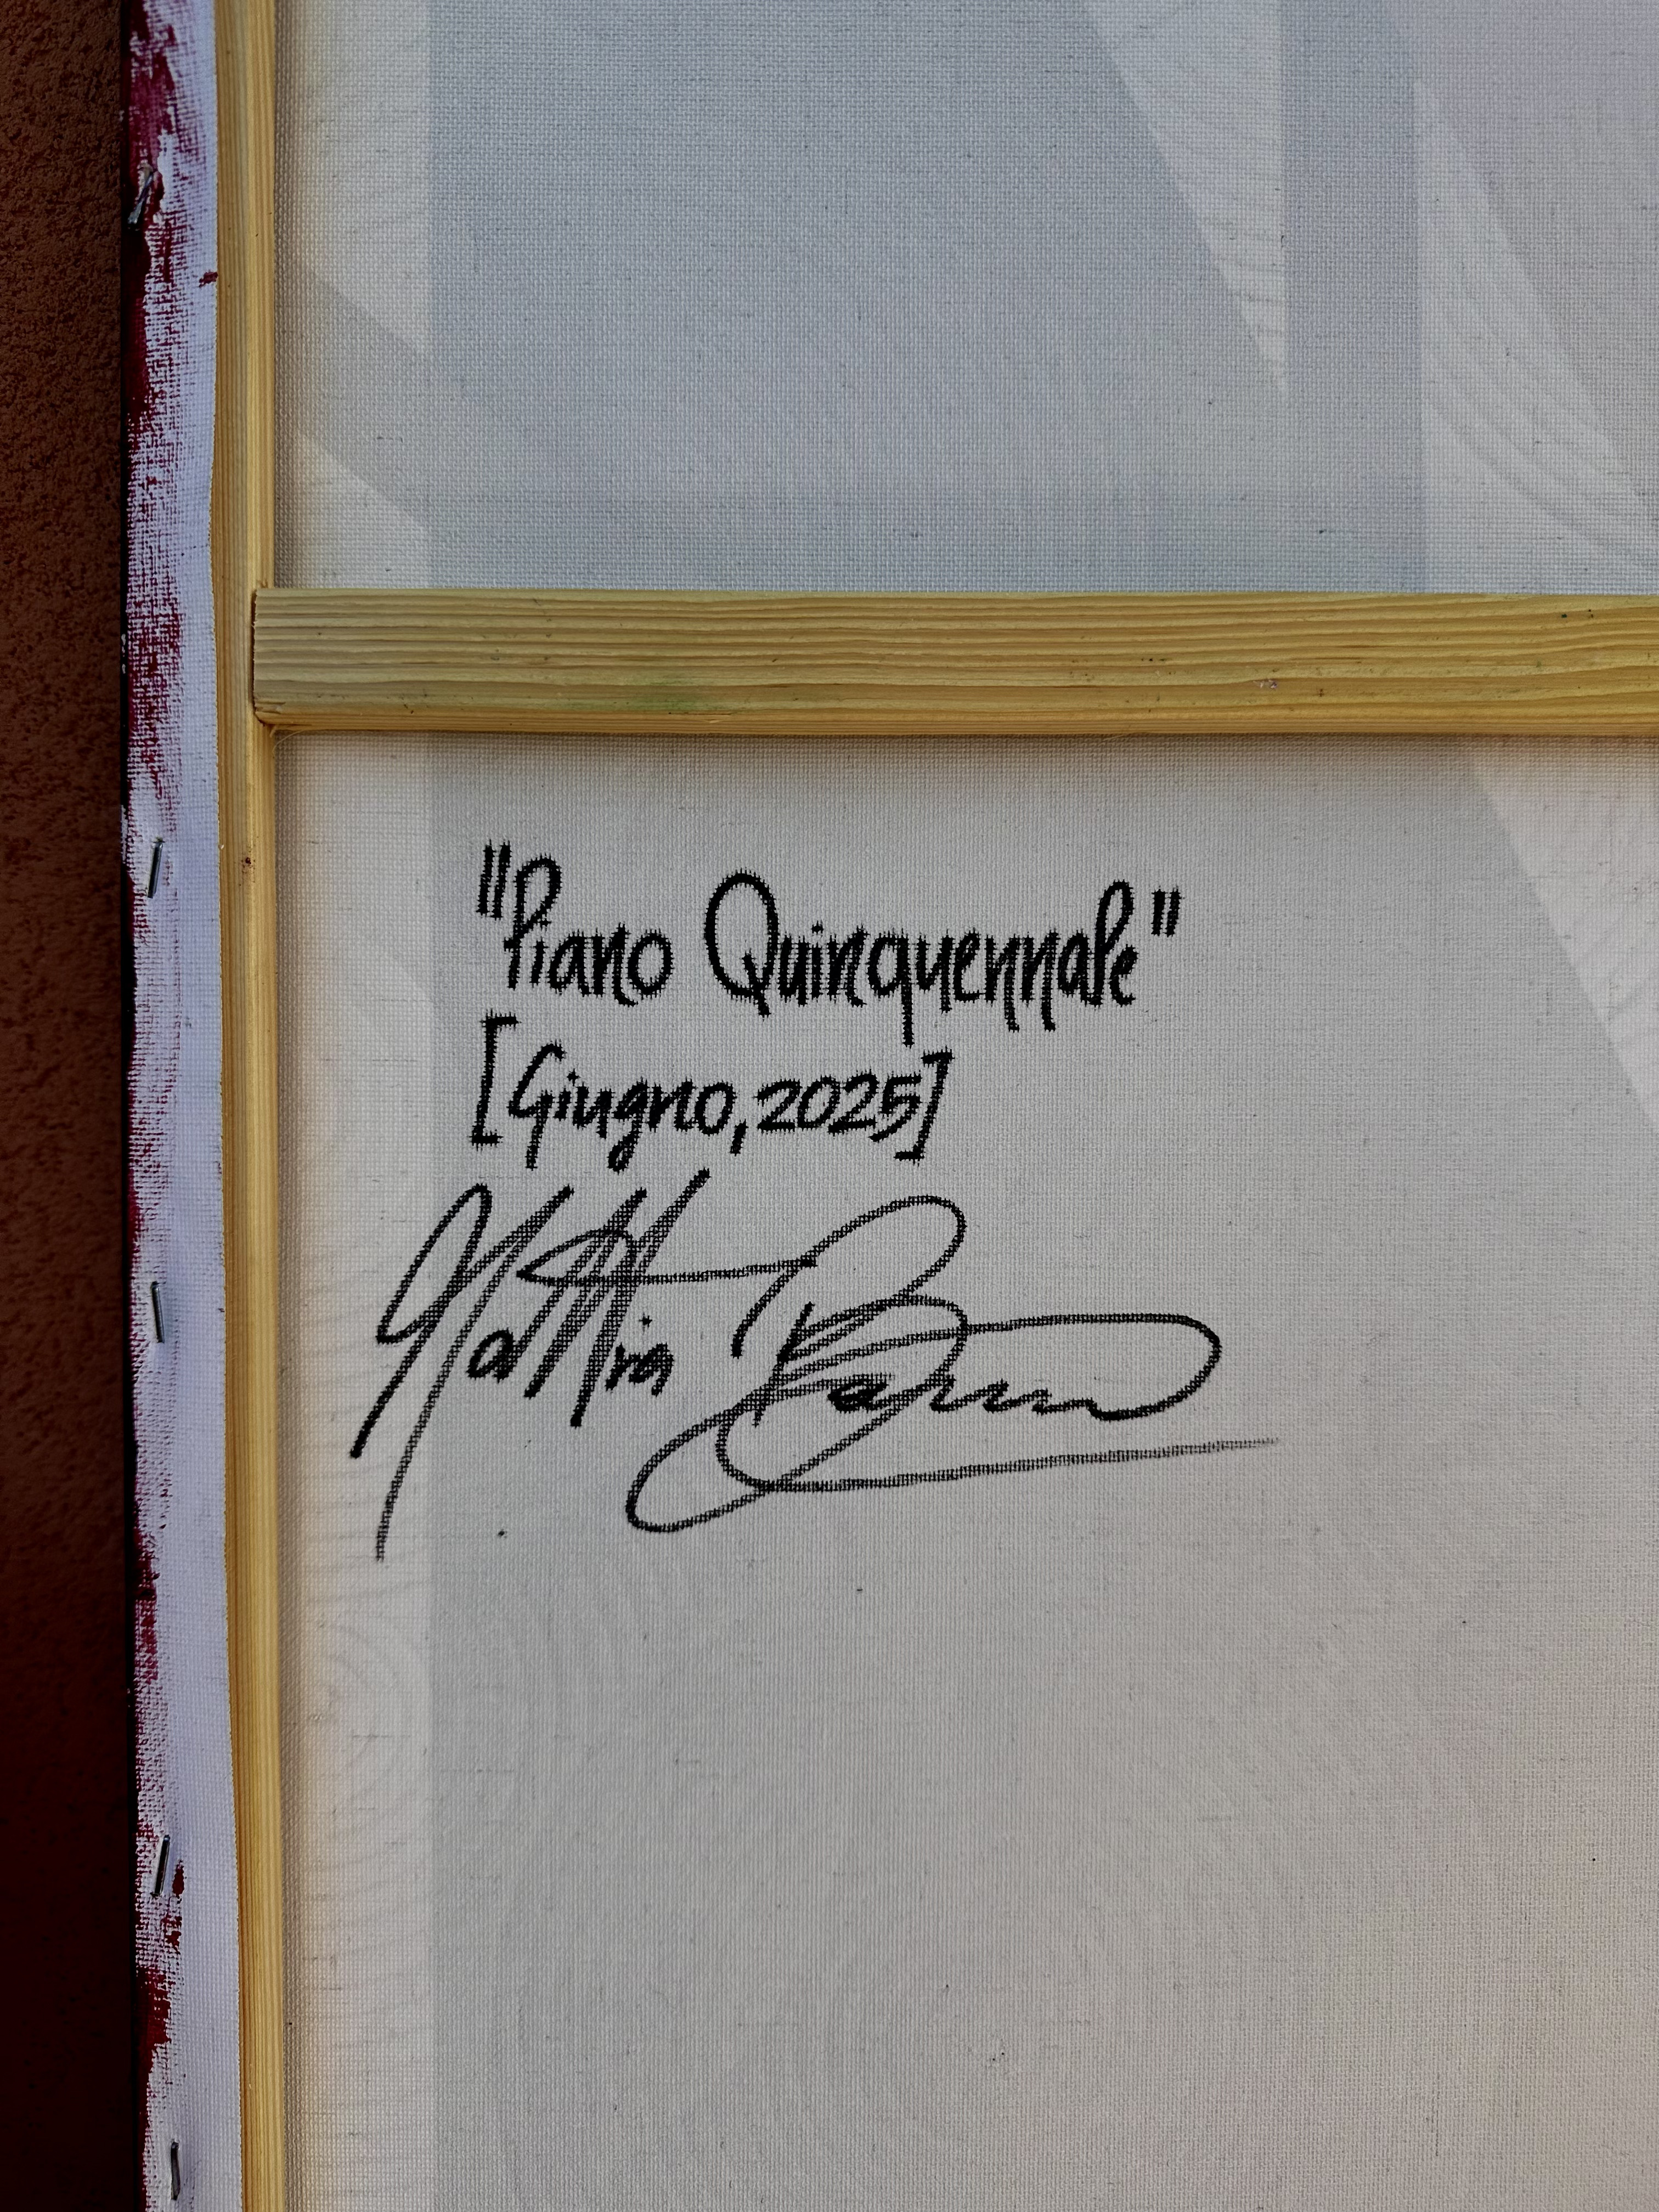 "Piano Quinquennale"
[Giugno, 2025]
Mattia